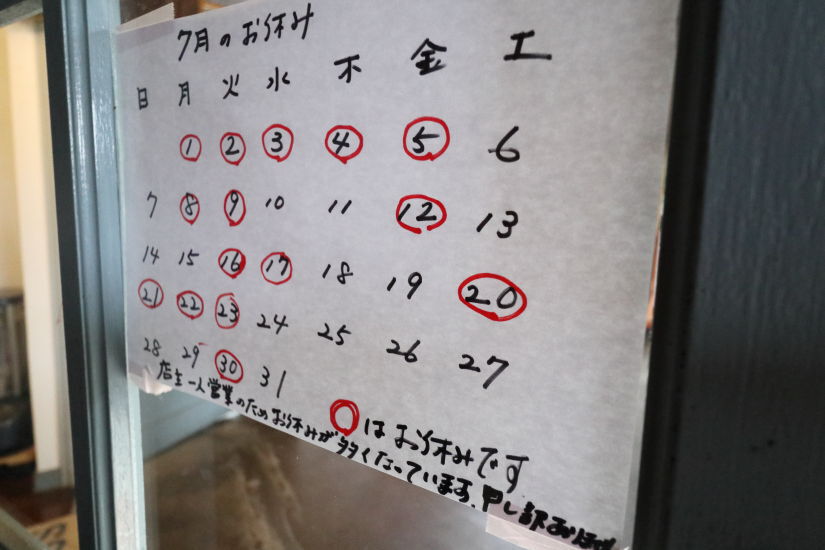 7月のお休み
日 月 火 水 木 金 土
1 2 3 4 5 6
7 8 9 10 11 12 13
14 15 16 17 18 19 20
21 22 23 24 25 26 27
28 29 30 31
○はお休みです
店主一人営業のためお休みが多くなっています、申し訳あり